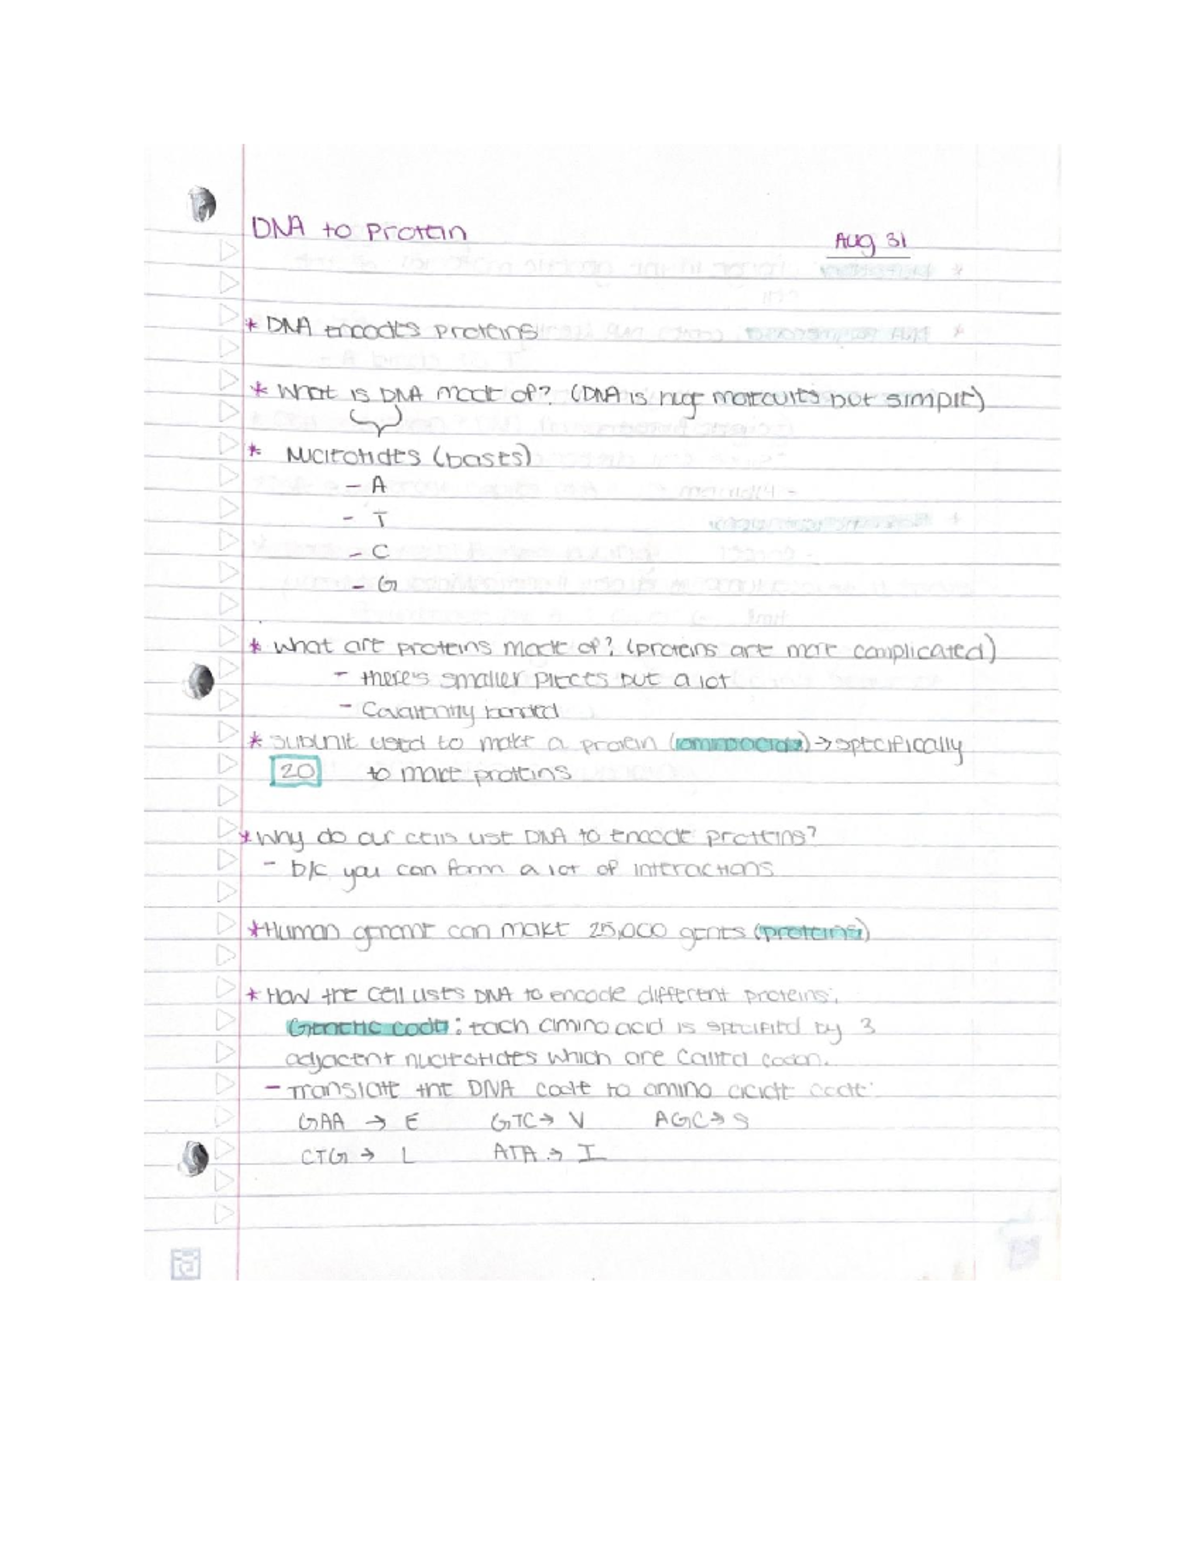 DNA to Protein
Aug 31
* DNA encodes proteins
* What is DNA made of? (DNA is huge molecules but simple)
* Nucleotides (bases)
- A
- T
- C
- G
* what are proteins made of? (proteins are more complicated)
- there's smaller pieces but a lot
- Covalently bonded
* subunit used to make a protein (amino acids) → specifically
20 to make proteins
* Why do our cells use DNA to encode proteins?
- b/c you can form a lot of interactions
* Human genome can make 25,000 genes (proteins)
* How the cell uses DNA to encode different proteins:
Genetic code: Each amino acid is specified by 3
adjacent nucleotides which are called codon.
- Translate the DNA code to amino acide code:
GAA → E GTC → V AGC → S
CTG → L ATA → I